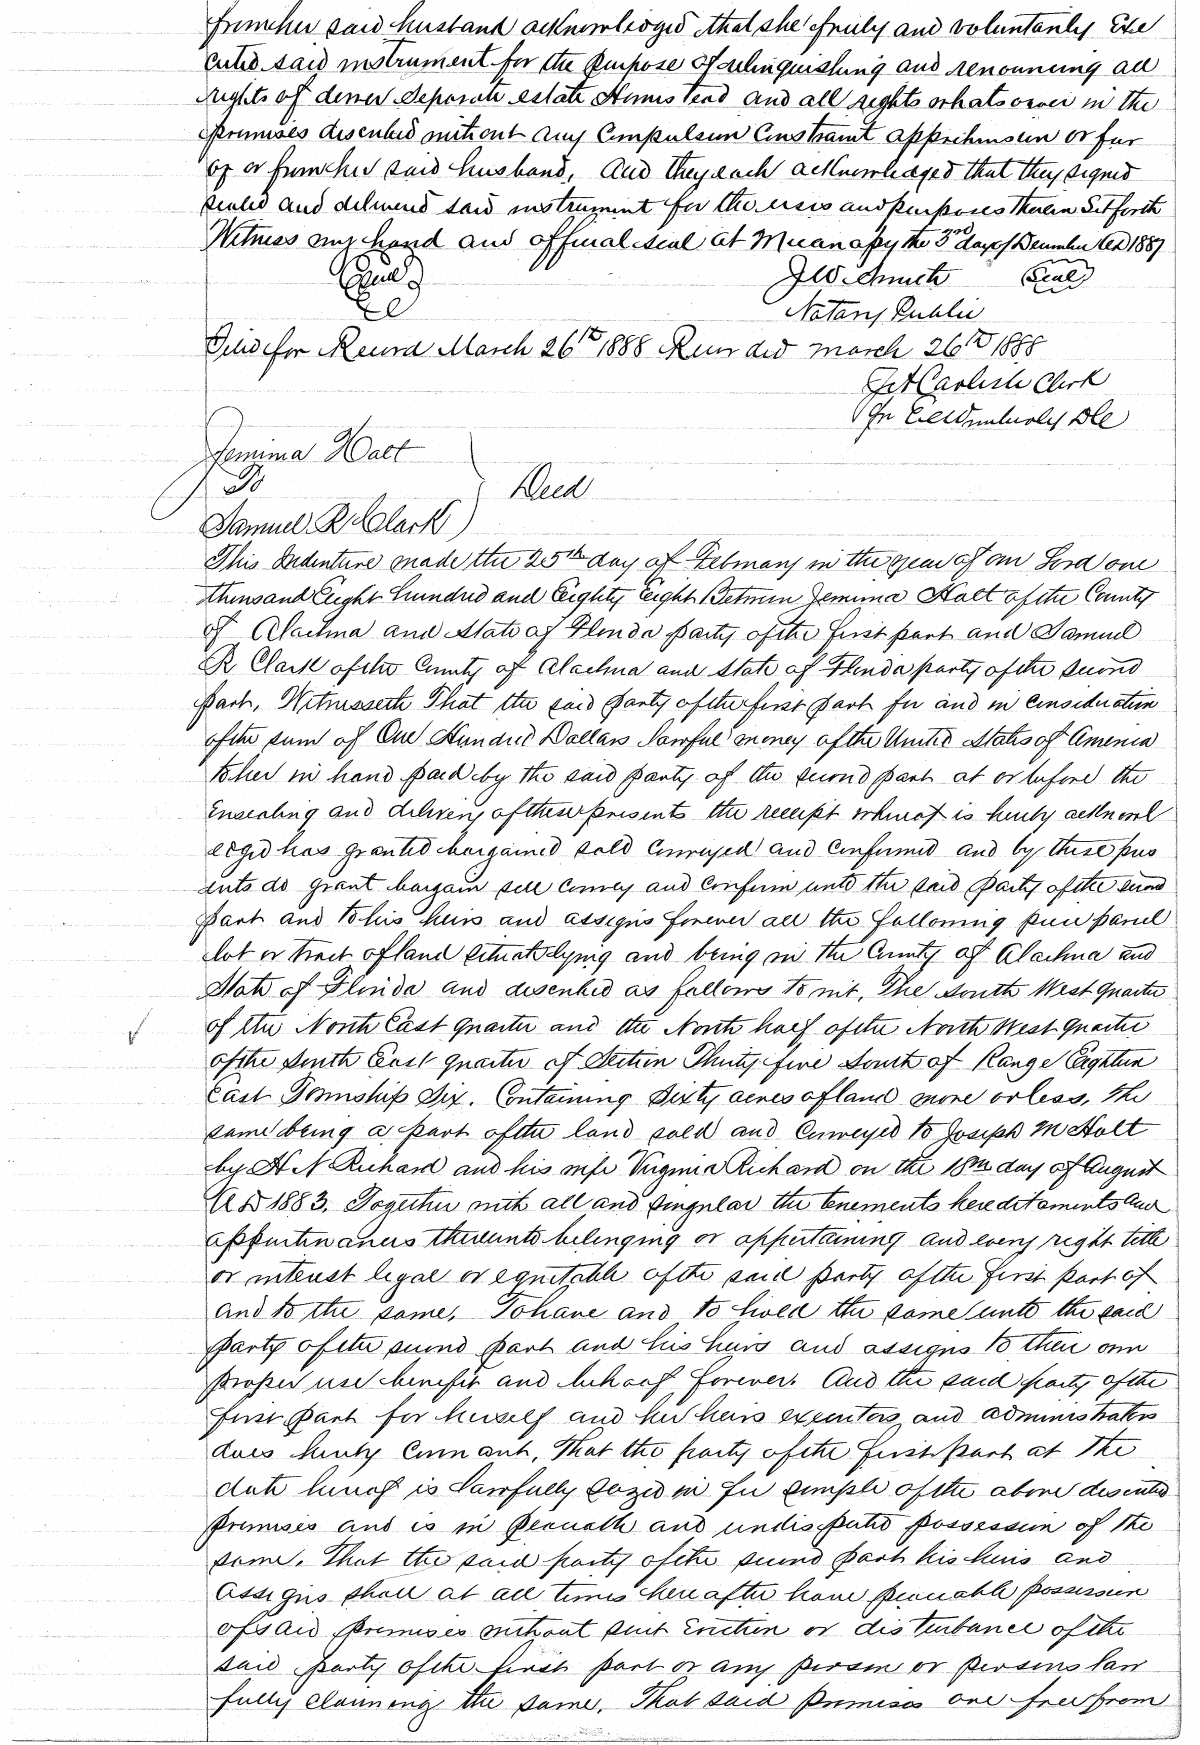 from her said husband acknowledged that she freely and voluntarily Exe
cuted said instrument for the purpose of relinquishing and renouncing all
rights of dower Separate estate Homestead and all rights whatsoever in the
premises described without any Compulsion Constraint apprehension or fear
of or from her said husband, And they each acknowledged that they signed
sealed and delivered said instrument for the uses and purposes Therein Set forth
Witness my hand and official seal at Micanopy the 3rd day of December AD 1887
Seal J W Smith Seal
Notary Public
Filed for Record March 26th 1888 Recorded March 26th 1888
Carlisle Clerk
DC
Jemima Holt
To Deed
Samuel R Clark
This Indenture made the 25th day of February in the year of our Lord one
thousand Eight hundred and Eighty Eight Between Jemima Holt of the County
of Alachua and State of Florida party of the first part and Samuel
R Clark of the County of Alachua and State of Florida party of the second
part, Witnesseth That the said party of the first part for and in consideration
of the sum of One Hundred Dollars lawful money of the United States of America
to her in hand paid by the said party of the second part at or before the
ensealing and delivery of these presents the receipt whereof is hereby acknowl
edged has granted bargained sold conveyed and confirmed and by these pres
ents do grant bargain sell convey and confirm unto the said party of the second
part and to his heirs and assigns forever all the following piece parcel
lot or tract of land situate lying and being in the County of Alachua and
State of Florida and described as follows to wit, The South West quarter
of the North East quarter and the North half of the North West quarter
of the South East quarter of Section Thirty five South of Range Eighteen
East Township Six. Containing Sixty acres of land more or less, the
same being a part of the land sold and conveyed to Joseph M Holt
by H N Richard and his wife Virginia Richard on the 18th day of August
AD 1883. Together with all and singular the tenements hereditaments and
appurtenances thereunto belonging or appertaining and every right title
or interest legal or equitable of the said party of the first part of
and to the same. To have and to hold the same unto the said
party of the second part and his heirs and assigns to their own
proper use benefit and behoof forever. And the said party of the
first part for herself and her heirs executors and administrators
does hereby covenant, That the party of the first part at the
date hereof is lawfully seized in fee simple of the above described
premises and is in peaceable and undisputed possession of the
same. That the said party of the second part his heirs and
assigns shall at all times hereafter have peaceable possession
of said premises without suit Eviction or disturbance of the
said party of the first part or any person or persons law
fully claiming the same. That said premises are free from